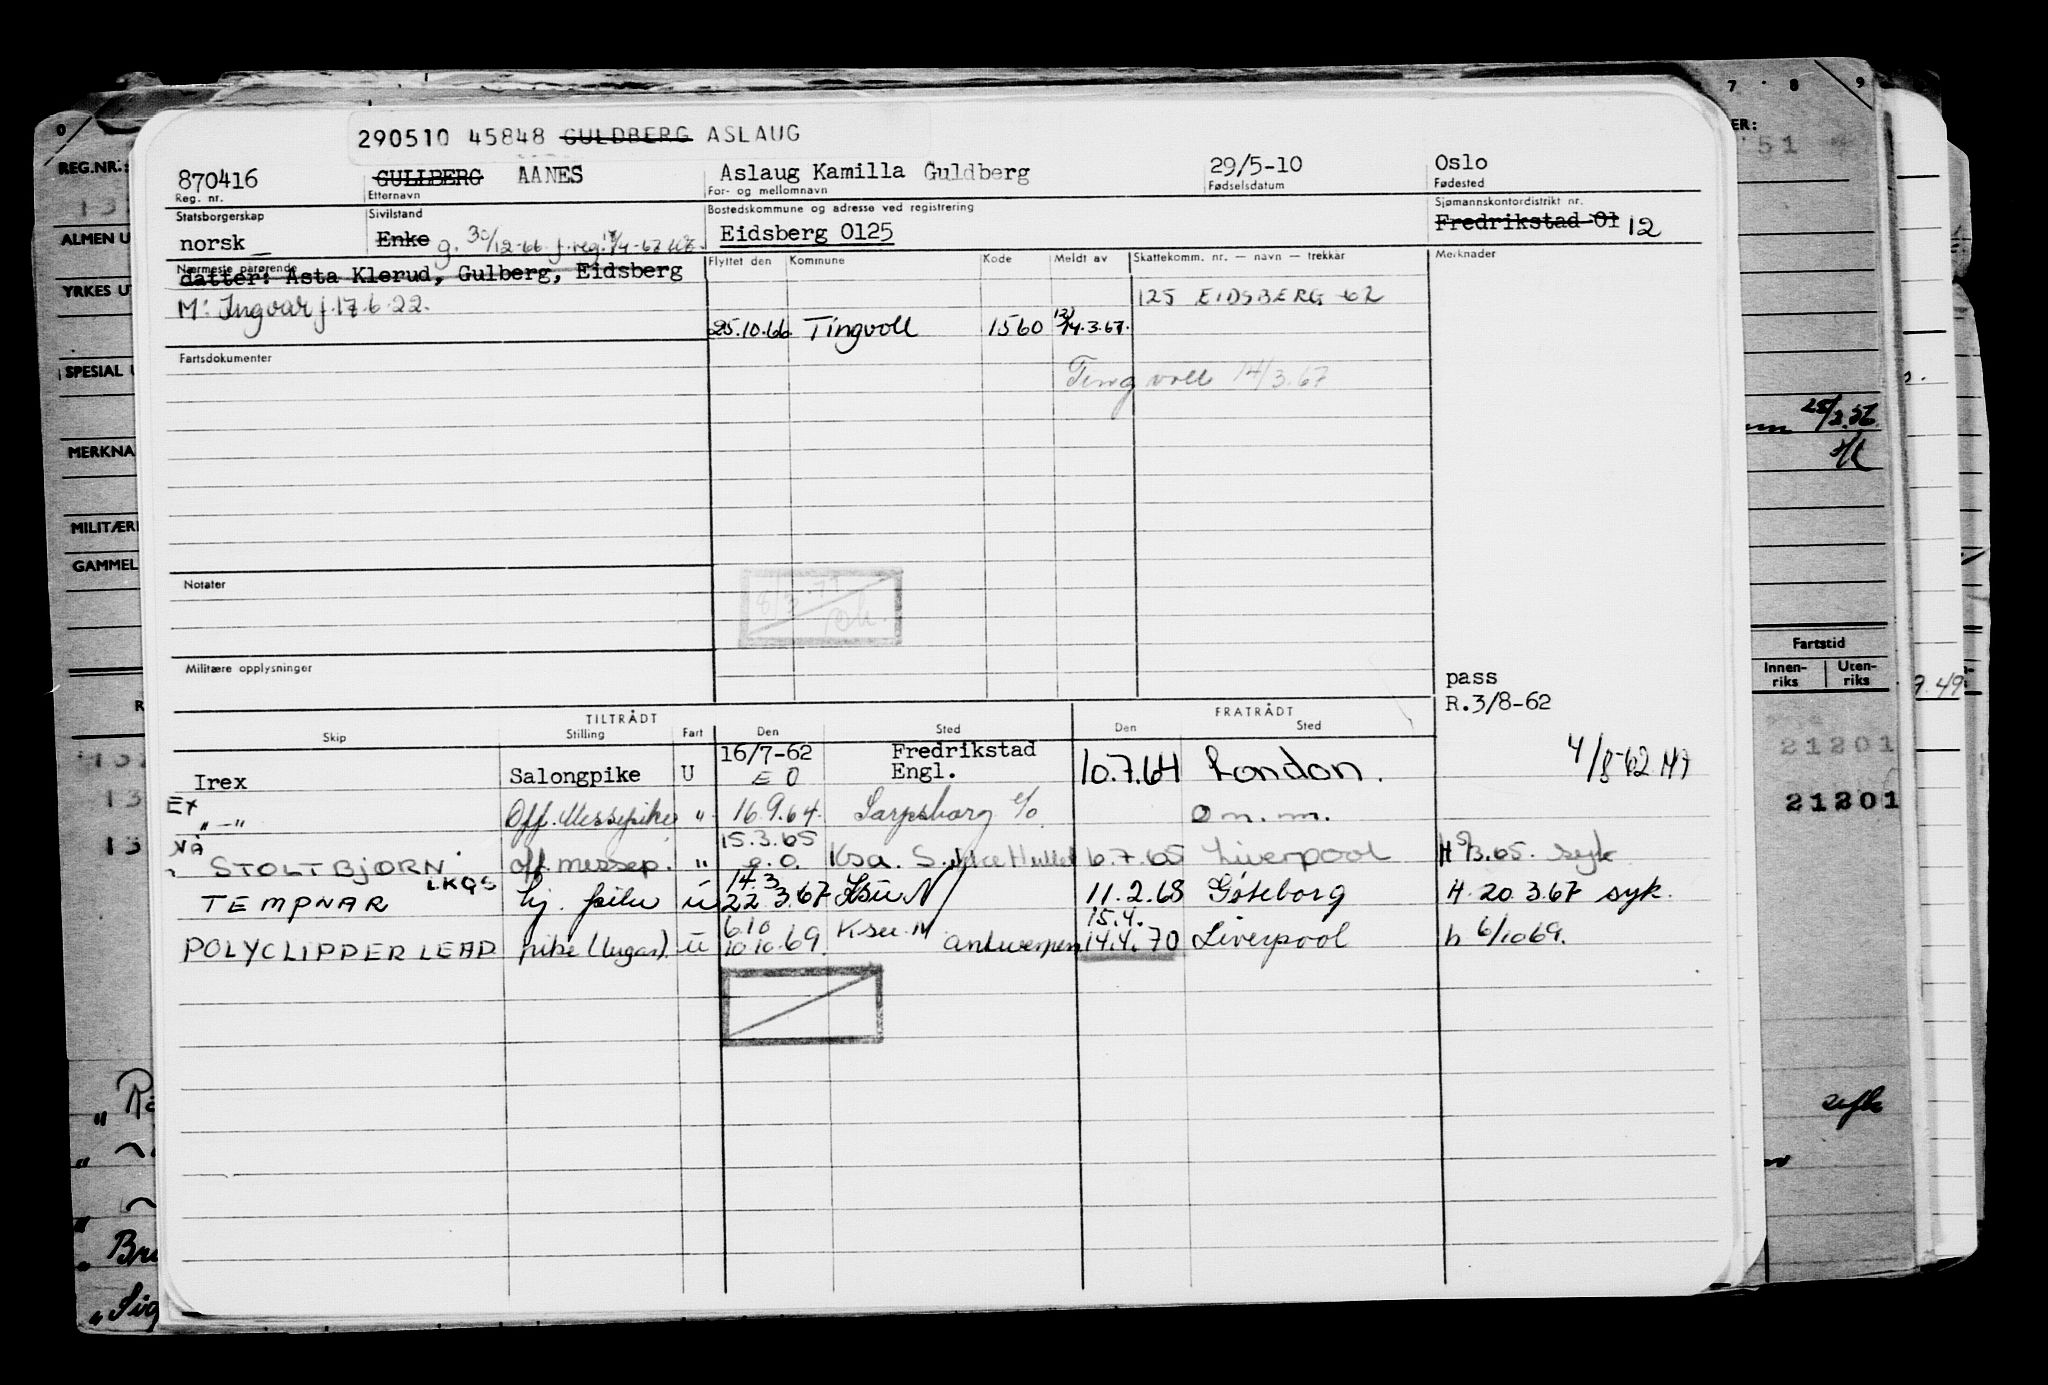 290510 45848 GULDBERG ASLAUG
870416 GULLBERG AANES Aslaug Kamilla Guldberg 29/5-10 Oslo
Reg. nr. Etternavn For- og mellomnavn Fødselsdatum Fødested
Statsborgerskap Sivilstand Bostedskommune og adresse ved registrering Sjømannskontordistrikt nr.
norsk Enke g. 30/12-66 f. reg. Eidsberg 0125 Fredrikstad 01 12
Nærmeste pårørende Flyttet den Kommune Kode Meldt av Skattekomm. nr. — navn — trekkår Merknader
datter: Asta Klerud, Gulberg, Eidsberg
M: Ingvar f. 17.6.22. 125 EIDSBERG 62
25.10.66 Tingvoll 1560 14.3.67.
Fartsdokumenter
Tingvoll 14/3.67
Notater
8/3-71
Militære opplysninger
pass
R.3/8-62
TILTRÅDT FRATRÅDT
Skip Stilling Fart Den Sted Den Sted
Irex Salongpike U 16/7-62 Fredrikstad 10.7.64 London. 4/8-62
E O Engl.
Ex " — " Off. Messepike " 16.9.64. Sarpsborg e/o o m. m.
Nå STOLT BJØRN. off. messep. " 15.3.65 e.o. Ksa. 6.7.65 Liverpool syk
TEMPNAR LKQS pike u 14.3 22.3.67 Ksu N 11.2.68 Göteborg H. 20.3.67 syk.
POLYCLIPPER LEAD pike (lugar). u 6.10 10.10.69. Ksu. N Antwerpen 15.4. 14.4.70 Liverpool h 6/10 69.
REG.NR.:
ALMEN U
YRKES U
SPESIAL U
MERKNA
MILITÆR
GAMMEL
7 8 9
ER:
51
25/2.56
Fartstid
Innen-riks Uten-riks
9.49
21201
21201